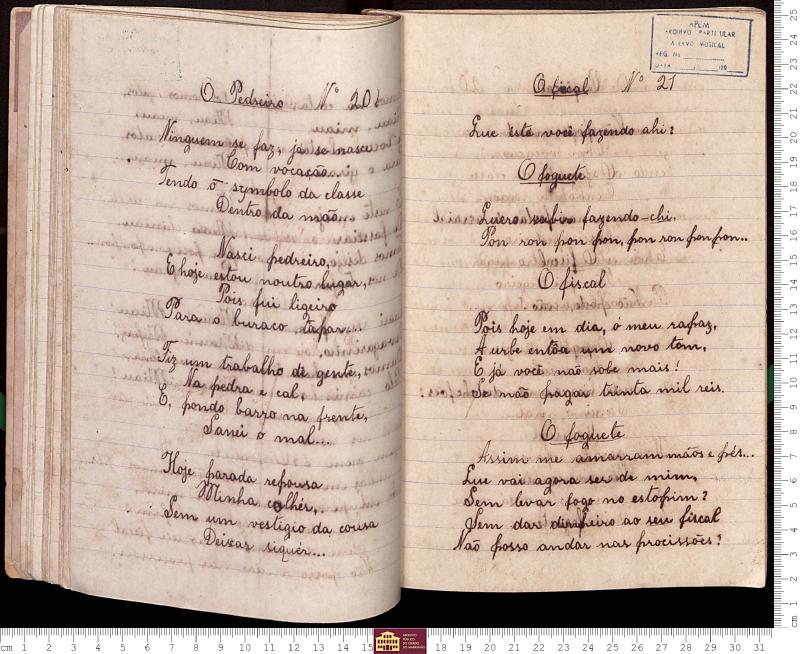 O Pedreiro Nº 20
Ninguem se faz, já se nasce
Com vocação.
Tendo o symbolo da classe
Dentro da mão.
Nasci pedreiro,
E hoje estou noutro lugar,
Pois fui ligeiro
Para o buraco tapar...
Fiz um trabalho de gente,
Na pedra e cal,
E, pondo barro na frente,
Sanei o mal...
Hoje parada repousa
Minha colhér,
Sem um vestigio da cousa
Deixar siquér...
APEM
ARQUIVO PARTICULAR
ACERVO MUSICAL
REG. No
DATA
O fiscal Nº 21
Que está você fazendo ahi?
O foguete
Quero subir fazendo-chi.
Pon ron pon pon, pon ron pon pon..
O fiscal
Pois hoje em dia, ó meu rapaz,
A urbe entôa um novo tom,
E já você não sobe mais!
Se não pagar trinta mil reis.
O foguete
Assim me amarram mãos e pés...
Que vai agora ser de mim,
Sem levar fogo no estopim?
Sem dar dinheiro ao seu fiscal
Não posso andar nas procissões?
ARQUIVO
PÚBLICO
DO ESTADO
DO MARANHÃO